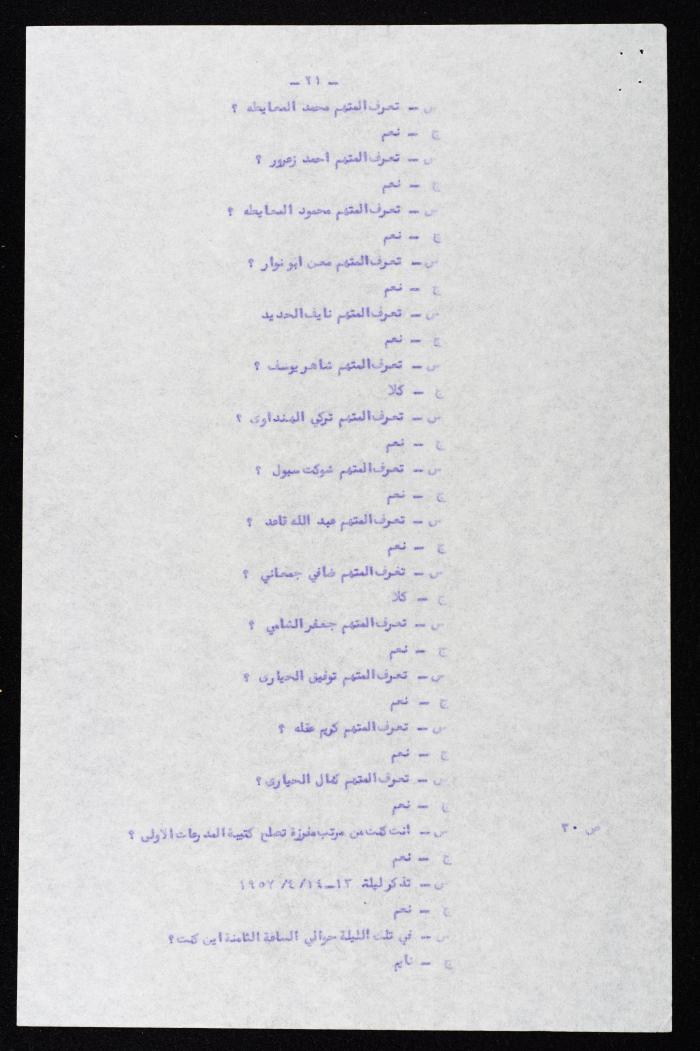 ـ ٢١ ـ
س ـ تعرف المتهم محمد المعايطه ؟
ج ـ نعم
س ـ تعرف المتهم احمد زعرور ؟
ج ـ نعم
س ـ تعرف المتهم محمود المعايطه ؟
ج ـ نعم
س ـ تعرف المتهم معن ابو نوار ؟
ج ـ نعم
س ـ تعرف المتهم نايف الحديد
ج ـ نعم
س ـ تعرف المتهم شاهر يوسف ؟
ج ـ كلا
س ـ تعرف المتهم تركي الهنداوى ؟
ج ـ نعم
س ـ تعرف المتهم شوكت سبول ؟
ج ـ نعم
س ـ تعرف المتهم عبد الله قاعد ؟
ج ـ نعم
س ـ تعرف المتهم ضافي جمعاني ؟
ج ـ كلا
س ـ تعرف المتهم جعفر الشامي ؟
ج ـ نعم
س ـ تعرف المتهم توفيق الحيارى ؟
ج ـ نعم
س ـ تعرف المتهم كريم عقله ؟
ج ـ نعم
س ـ تعرف المتهم كمال الحيارى ؟
ج ـ نعم
ص ٣٠ س ـ انت كنت من مرتب مفرزة تصليح كتيبة المدرعات الاولى ؟
ج ـ نعم
س ـ تذكر ليلة ١٣ـ١٤/٤/١٩٥٧
ج ـ نعم
س ـ في تلك الليلة حوالي الساعة الثامنة اين كنت ؟
ج ـ نايم